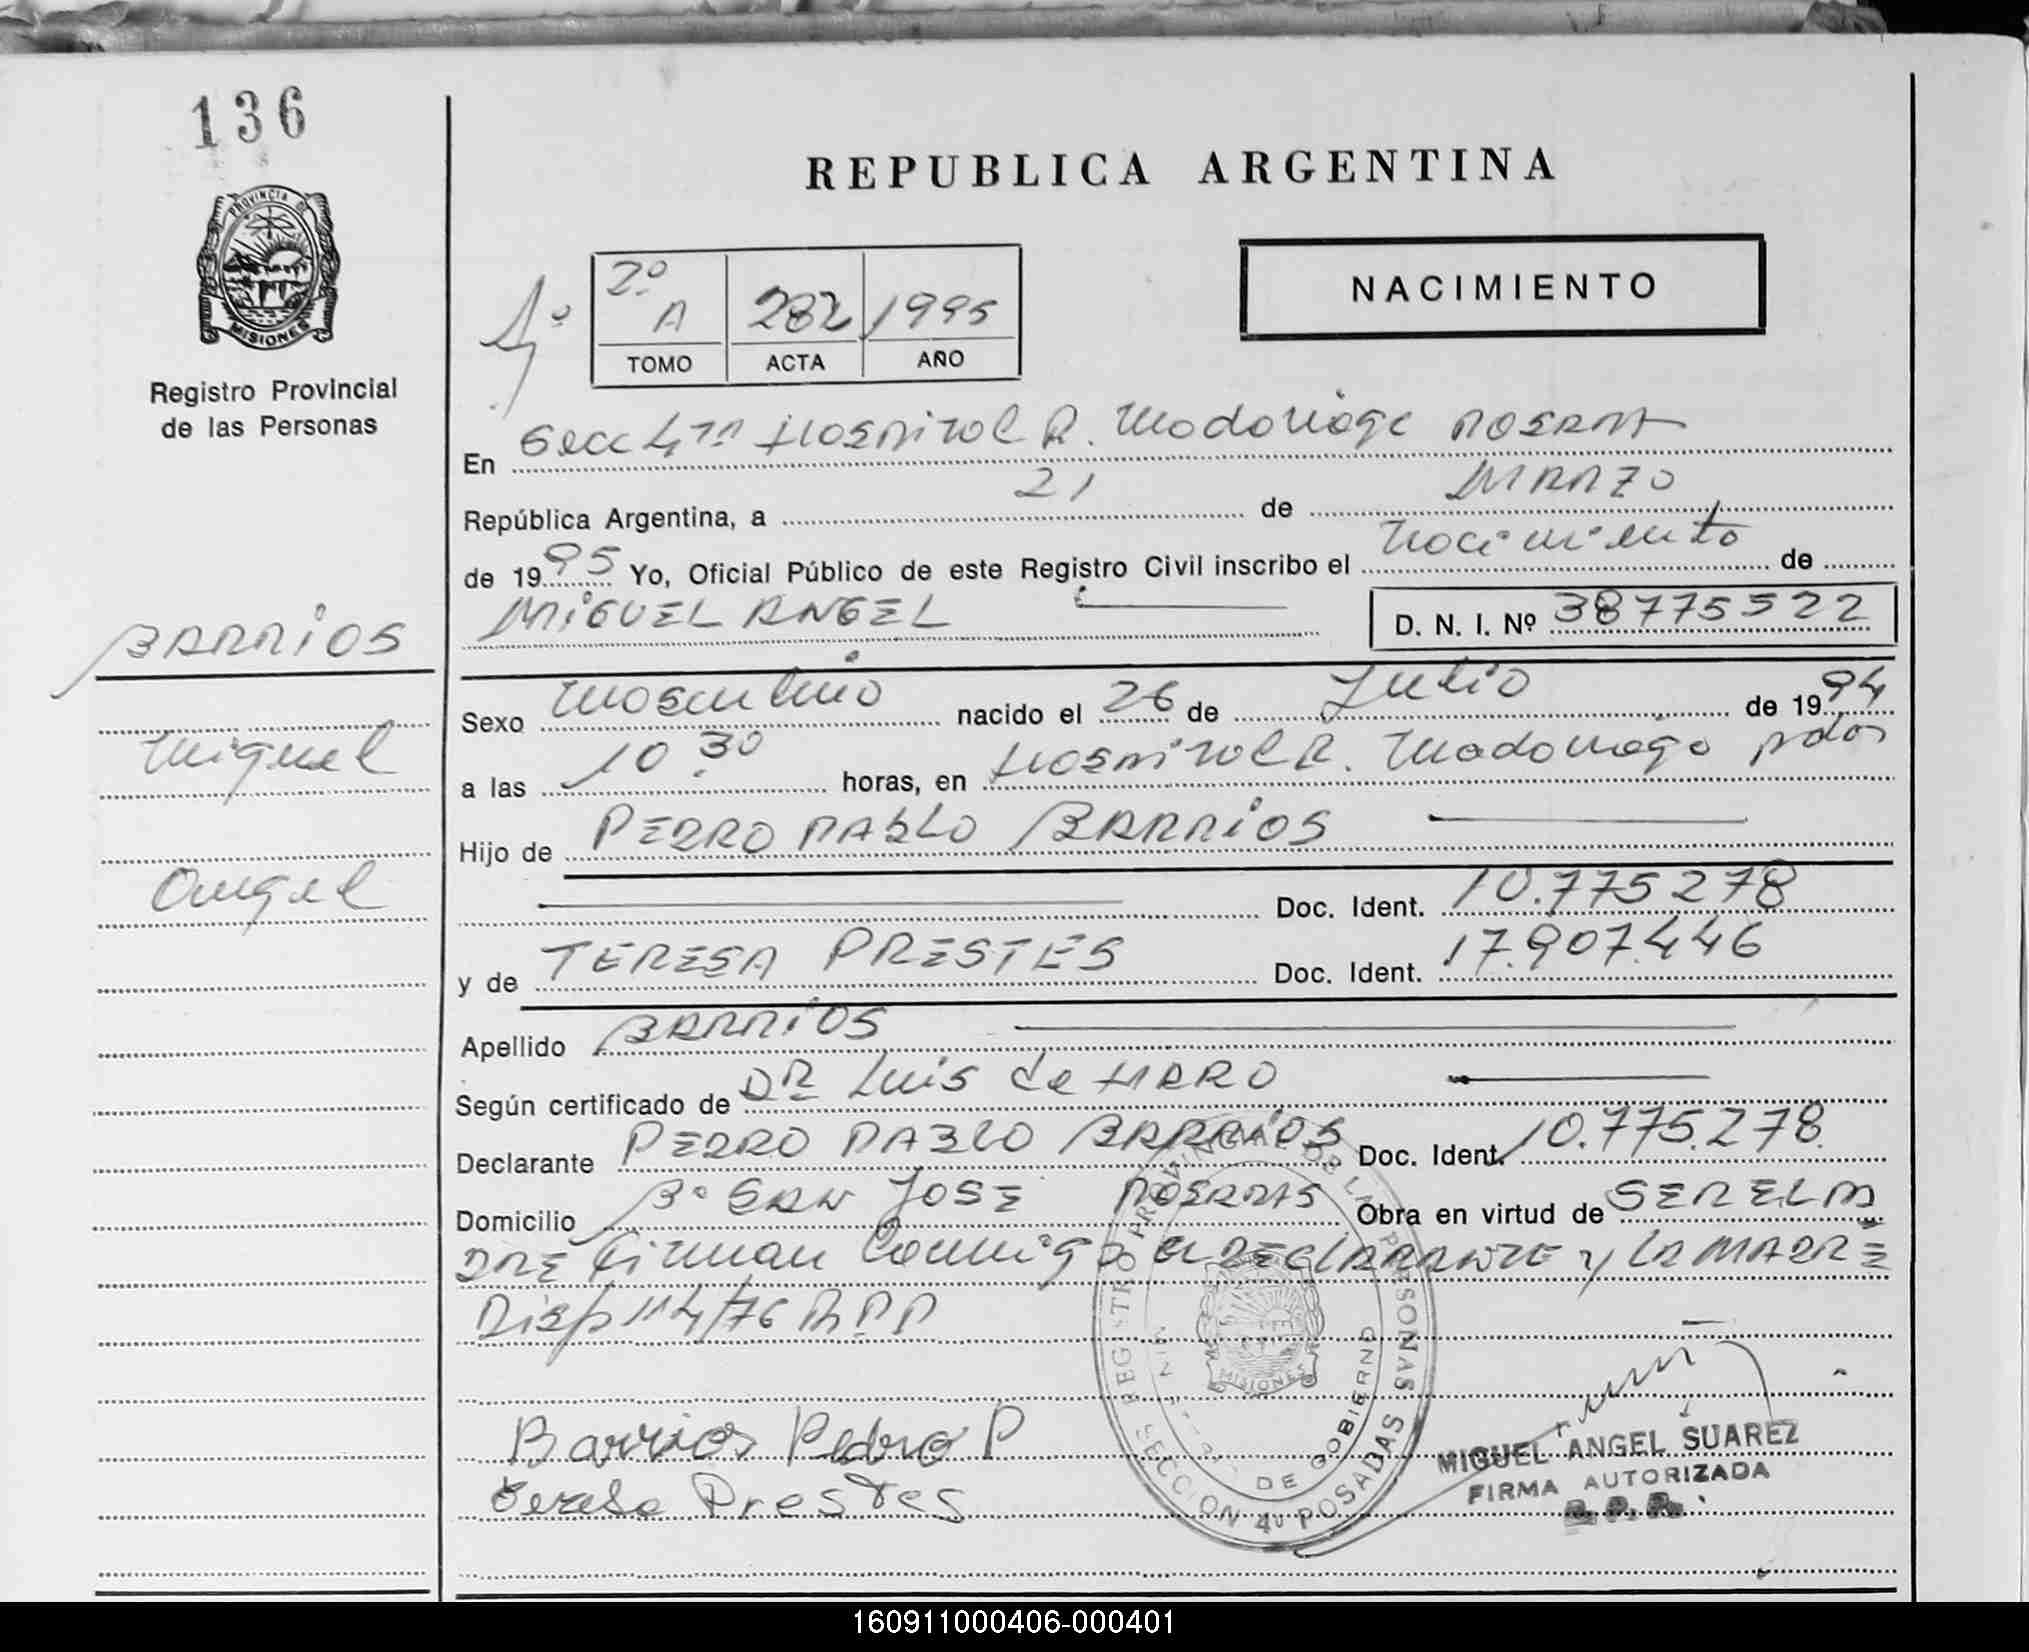 136
REPUBLICA ARGENTINA
PROVINCIA DE
MISIONES
Registro Provincial
de las Personas
NACIMIENTO
2º A 282 1995
TOMO ACTA AÑO
En Secc 4ta Hospital R. Madariaga Posadas
República Argentina, a 21 de MARZO
de 1995 Yo, Oficial Público de este Registro Civil inscribo el Nacimiento de
MIGUEL ANGEL
D. N. I. Nº 38775522
BARRIOS
Miguel
Angel
Sexo Masculino nacido el 26 de Julio de 1994
a las 10.30 horas, en Hospital R. Madariaga pdas
Hijo de PEDRO PABLO BARRIOS
Doc. Ident. 10.775278
y de TERESA PRESTES Doc. Ident. 17.907.446
Apellido BARRIOS
Según certificado de DR Luis de HARO
Declarante PEDRO PABLO BARRIOS Doc. Ident. 10.775.278
Domicilio Bº SAN JOSE POSADAS Obra en virtud de SER EL PA
DRE firman Conmigo el DECLARANTE y LA MADRE
Disp 114/76 R.P.P
REGISTRO PROVINCIAL DE LAS PERSONAS
DE GOBIERNO
MISIONES
SECCION 4º POSADAS
Barrios Pedro P
Teresa Prestes
MIGUEL ANGEL SUAREZ
FIRMA AUTORIZADA
R.P.P.
160911000406-000401